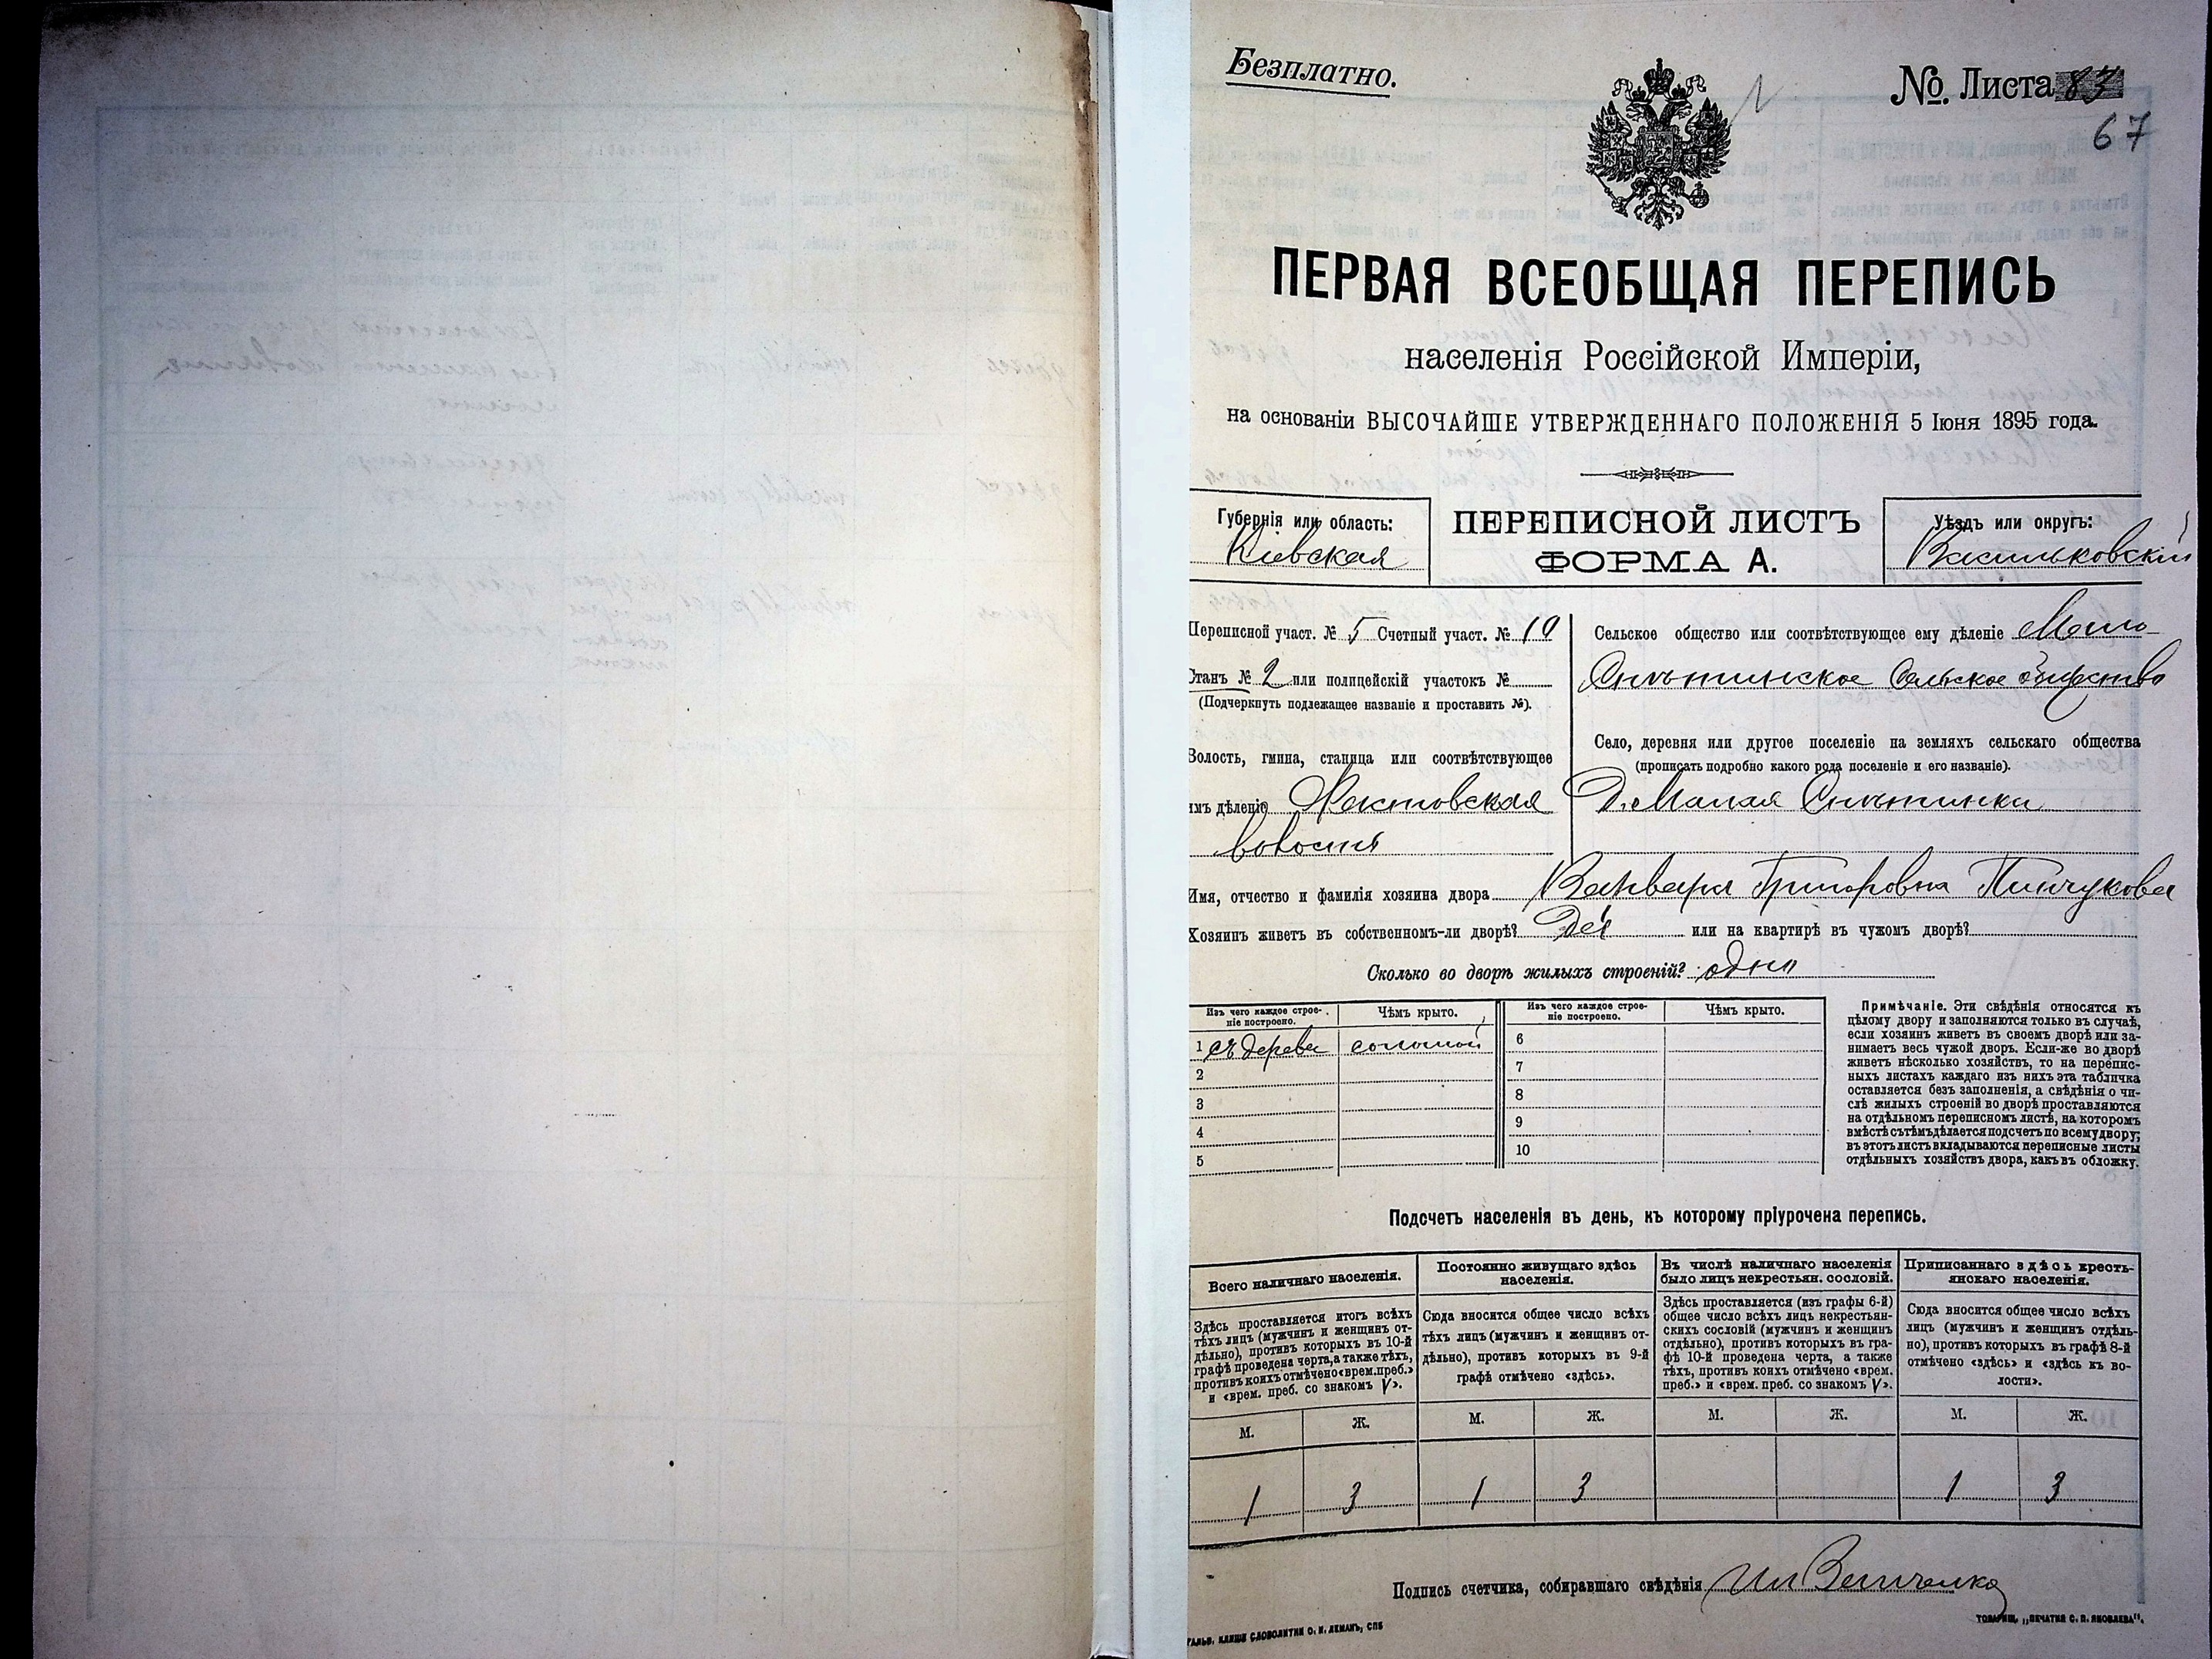 Безплатно.
№ Листа 83
67
ПЕРВАЯ ВСЕОБЩАЯ ПЕРЕПИСЬ
населенія Россійской Имперіи,
на основаніи ВЫСОЧАЙШЕ УТВЕРЖДЕННАГО ПОЛОЖЕНІЯ 5 Іюня 1895 года.
Губернія или область:
Кіевская
ПЕРЕПИСНОЙ ЛИСТЪ
ФОРМА А.
Уѣздъ или округъ:
Васильковскій
Переписной участ. № 5 Счетный участ. № 10
Станъ № 2 или полицейскій участокъ №
(Подчеркнуть подлежащее названіе и проставить №).
Волость, гмина, станица или соотвѣтствующее
имъ дѣленіе Фастовская
волость
Сельское общество или соотвѣтствующее ему дѣленіе Мало-
Снѣтинское Сельское общество
Село, деревня или другое поселеніе на земляхъ сельскаго общества
(прописать подробно какого рода поселеніе и его названіе).
Д. Малая Снѣтинка
Имя, отчество и фамилія хозяина двора Варвара Григоровна Пинчукова
Хозяинъ живетъ въ собственномъ-ли дворѣ? Да или на квартирѣ въ чужомъ дворѣ?
Сколько во дворѣ жилыхъ строеній? одно
Изъ чего каждое строе-
ніе построено.
Чѣмъ крыто.
Изъ чего каждое строе-
ніе построено.
Чѣмъ крыто.
1 съ дерева соломой 6
2 7
3 8
4 9
5 10
Примѣчаніе. Эти свѣдѣнія относятся къ
цѣлому двору и заполняются только въ случаѣ,
если хозяинъ живетъ въ своемъ дворѣ или за-
нимаетъ весь чужой дворъ. Если-же во дворѣ
живетъ нѣсколько хозяйствъ, то на перепис-
ныхъ листахъ каждаго изъ нихъ эта табличка
оставляется безъ заполненія, а свѣдѣнія о чи-
слѣ жилыхъ строеній во дворѣ проставляются
на отдѣльномъ переписномъ листѣ, на которомъ
вмѣстѣ съ тѣмъ дѣлается подсчетъ по всему двору;
въ этотъ листъ вкладываются переписные листы
отдѣльныхъ хозяйствъ двора, какъ въ обложку.
Подсчетъ населенія въ день, къ которому пріурочена перепись.
Всего наличнаго населенія.
Здѣсь проставляется итогъ всѣхъ
тѣхъ лицъ (мужчинъ и женщинъ от-
дѣльно), противъ которыхъ въ 10-й
графѣ проведена черта, а также тѣхъ,
противъ коихъ отмѣчено «врем. преб.»
и «врем. преб. со знакомъ V».
Постоянно живущаго здѣсь
населенія.
Сюда вносится общее число всѣхъ
тѣхъ лицъ (мужчинъ и женщинъ от-
дѣльно), противъ которыхъ въ 9-й
графѣ отмѣчено «здѣсь».
Въ числѣ наличнаго населенія
было лицъ некрестьян. сословій.
Здѣсь проставляется (изъ графы 6-й)
общее число всѣхъ лицъ некрестьян-
скихъ сословій (мужчинъ и женщинъ
отдѣльно), противъ которыхъ въ гра-
фѣ 10-й проведена черта, а также
тѣхъ, противъ коихъ отмѣчено «врем.
преб.» и «врем. преб. со знакомъ V».
Приписаннаго здѣсь кресть-
янскаго населенія.
Сюда вносится общее число всѣхъ
лицъ (мужчинъ и женщинъ отдѣль-
но), противъ которыхъ въ графѣ 8-й
отмѣчено «здѣсь» и «здѣсь къ во-
лости».
М. Ж. М. Ж. М. Ж. М. Ж.
1 3 1 3 1 3
Подпись счетчика, собиравшаго свѣдѣнія
ГАЛЬВ. КЛИШЕ СЛОВОЛИТНИ О. И. ЛЕМАНЪ, СПБ
ТОВАРИЩ. „ПЕЧАТНЯ С. П. ЯКОВЛЕВА".